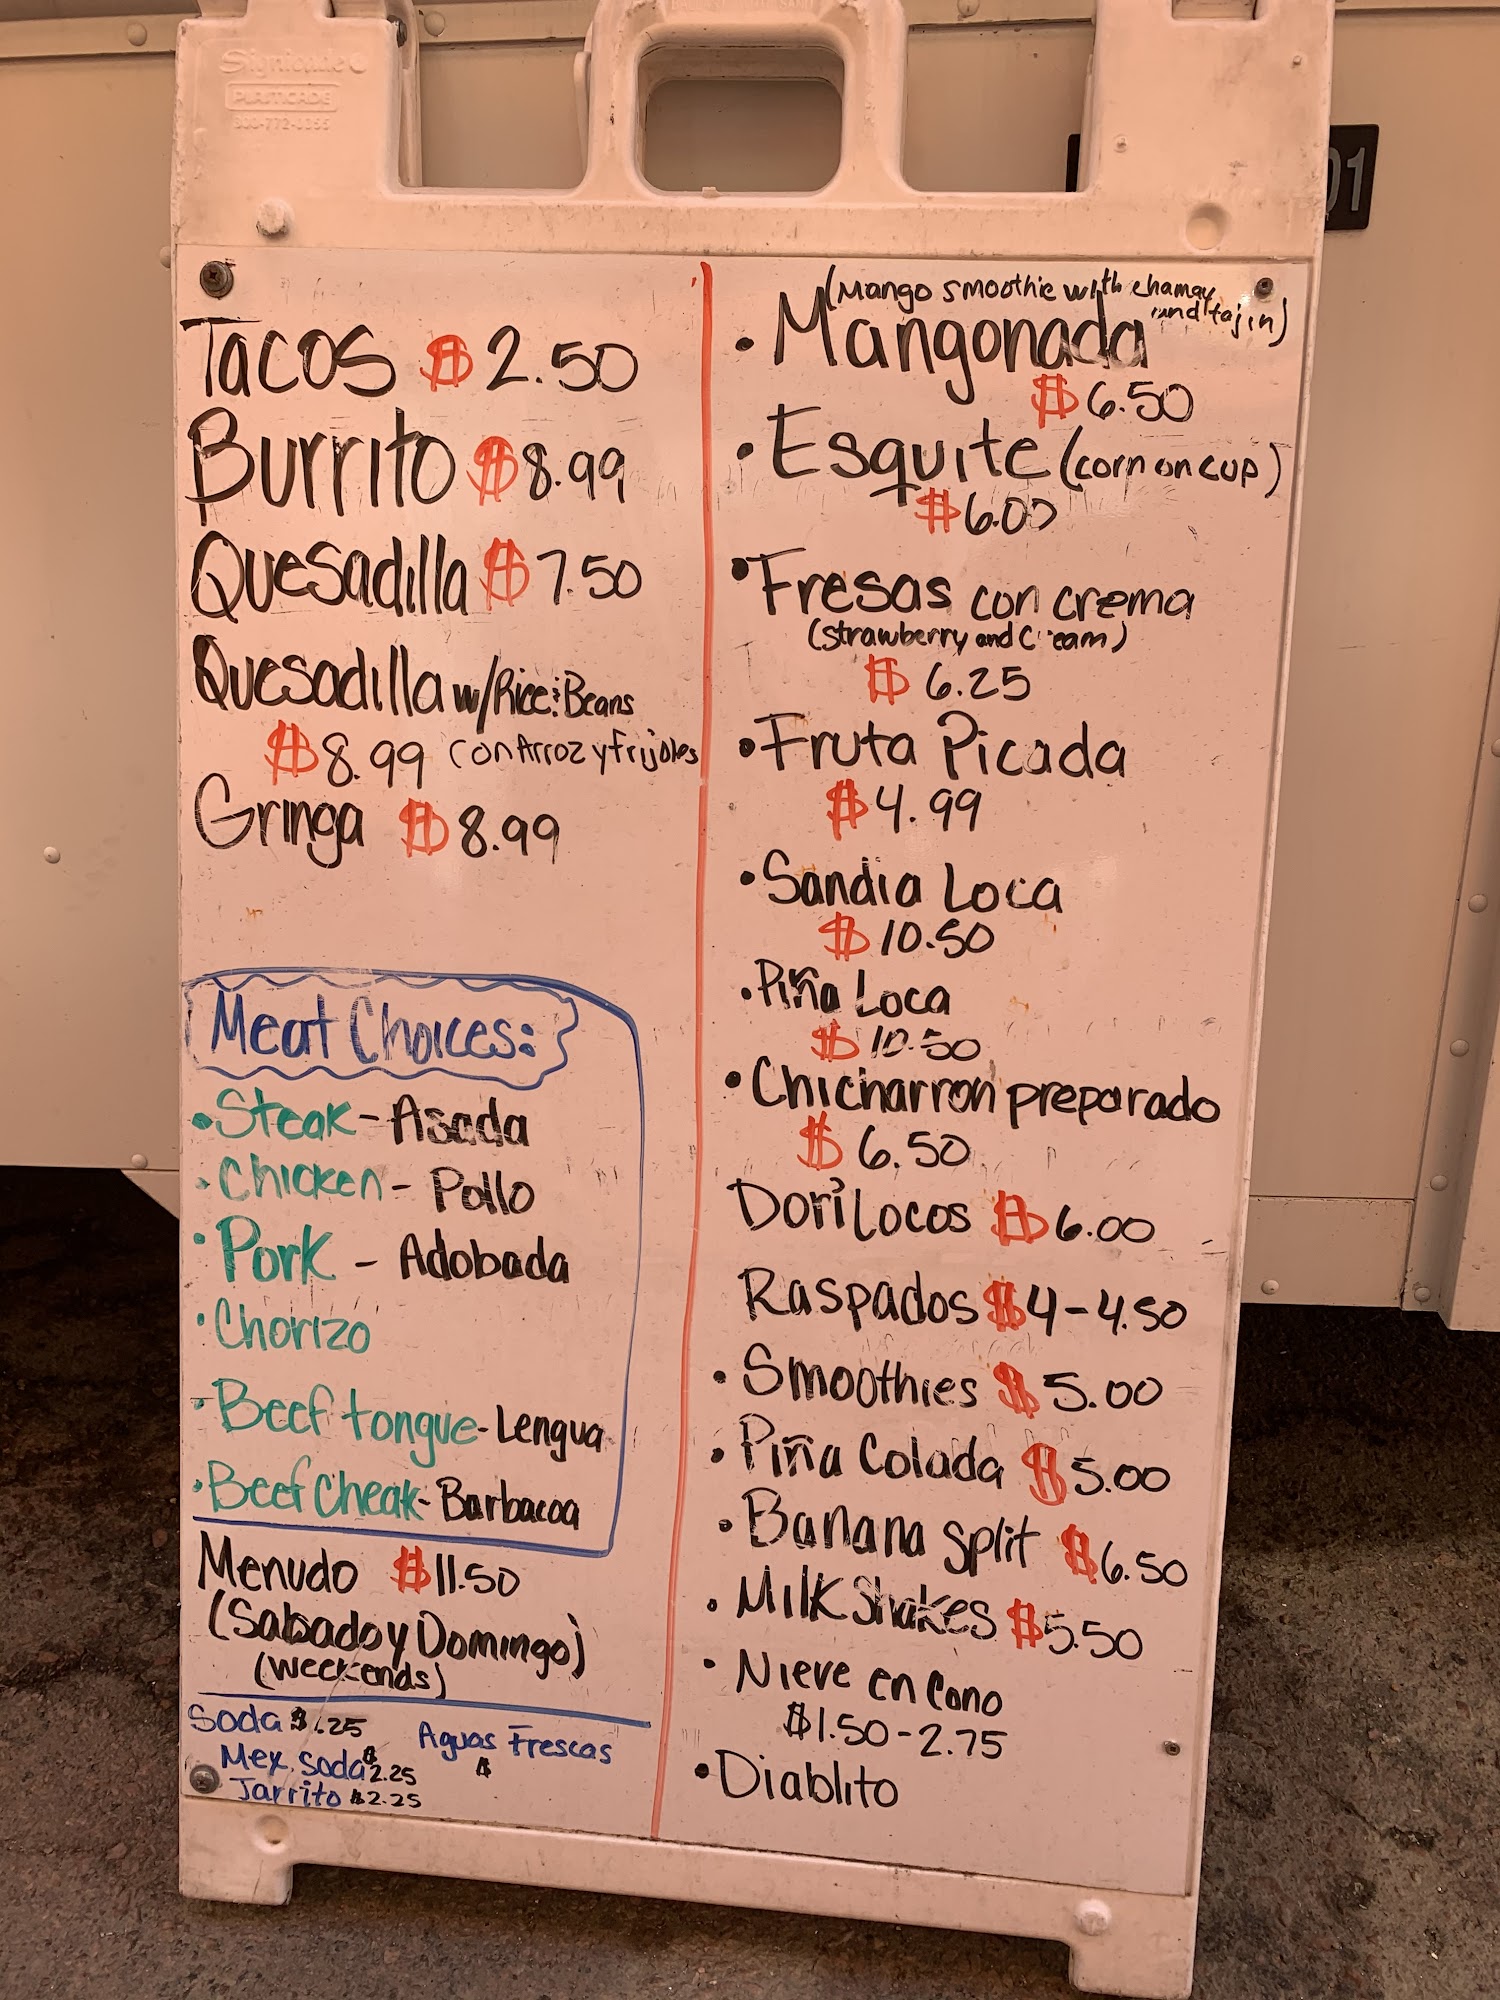 Signicade
PLASTICADE
01
Tacos $2.50
Burrito $8.99
Quesadilla $7.50
Quesadilla w/Rice & Beans
$8.99 con Arroz y frijoles
Gringa $8.99
Meat Choices:
• Steak - Asada
• Chicken - Pollo
• Pork - Adobada
• Chorizo
• Beef tongue - Lengua
• Beef Cheak - Barbacoa
Menudo $11.50
(Sabado y Domingo)
(weekends)
Soda $1.25
Mex. Soda $2.25
Jarrito $2.25
Aguas Frescas
$
(Mango smoothie with chamoy
and tajin)
• Mangonada
$6.50
• Esquite (corn on cup)
$6.00
• Fresas con crema
(strawberry and Cream)
$6.25
• Fruta Picada
$4.99
• Sandia Loca
$10.50
• Piña Loca
$10.50
• Chicharron preparado
$6.50
Dori Locos $6.00
Raspados $4-4.50
• Smoothies $5.00
• Piña Colada $5.00
• Banana split $6.50
• Milk Shakes $5.50
• Nieve en Cono
$1.50-2.75
• Diablito